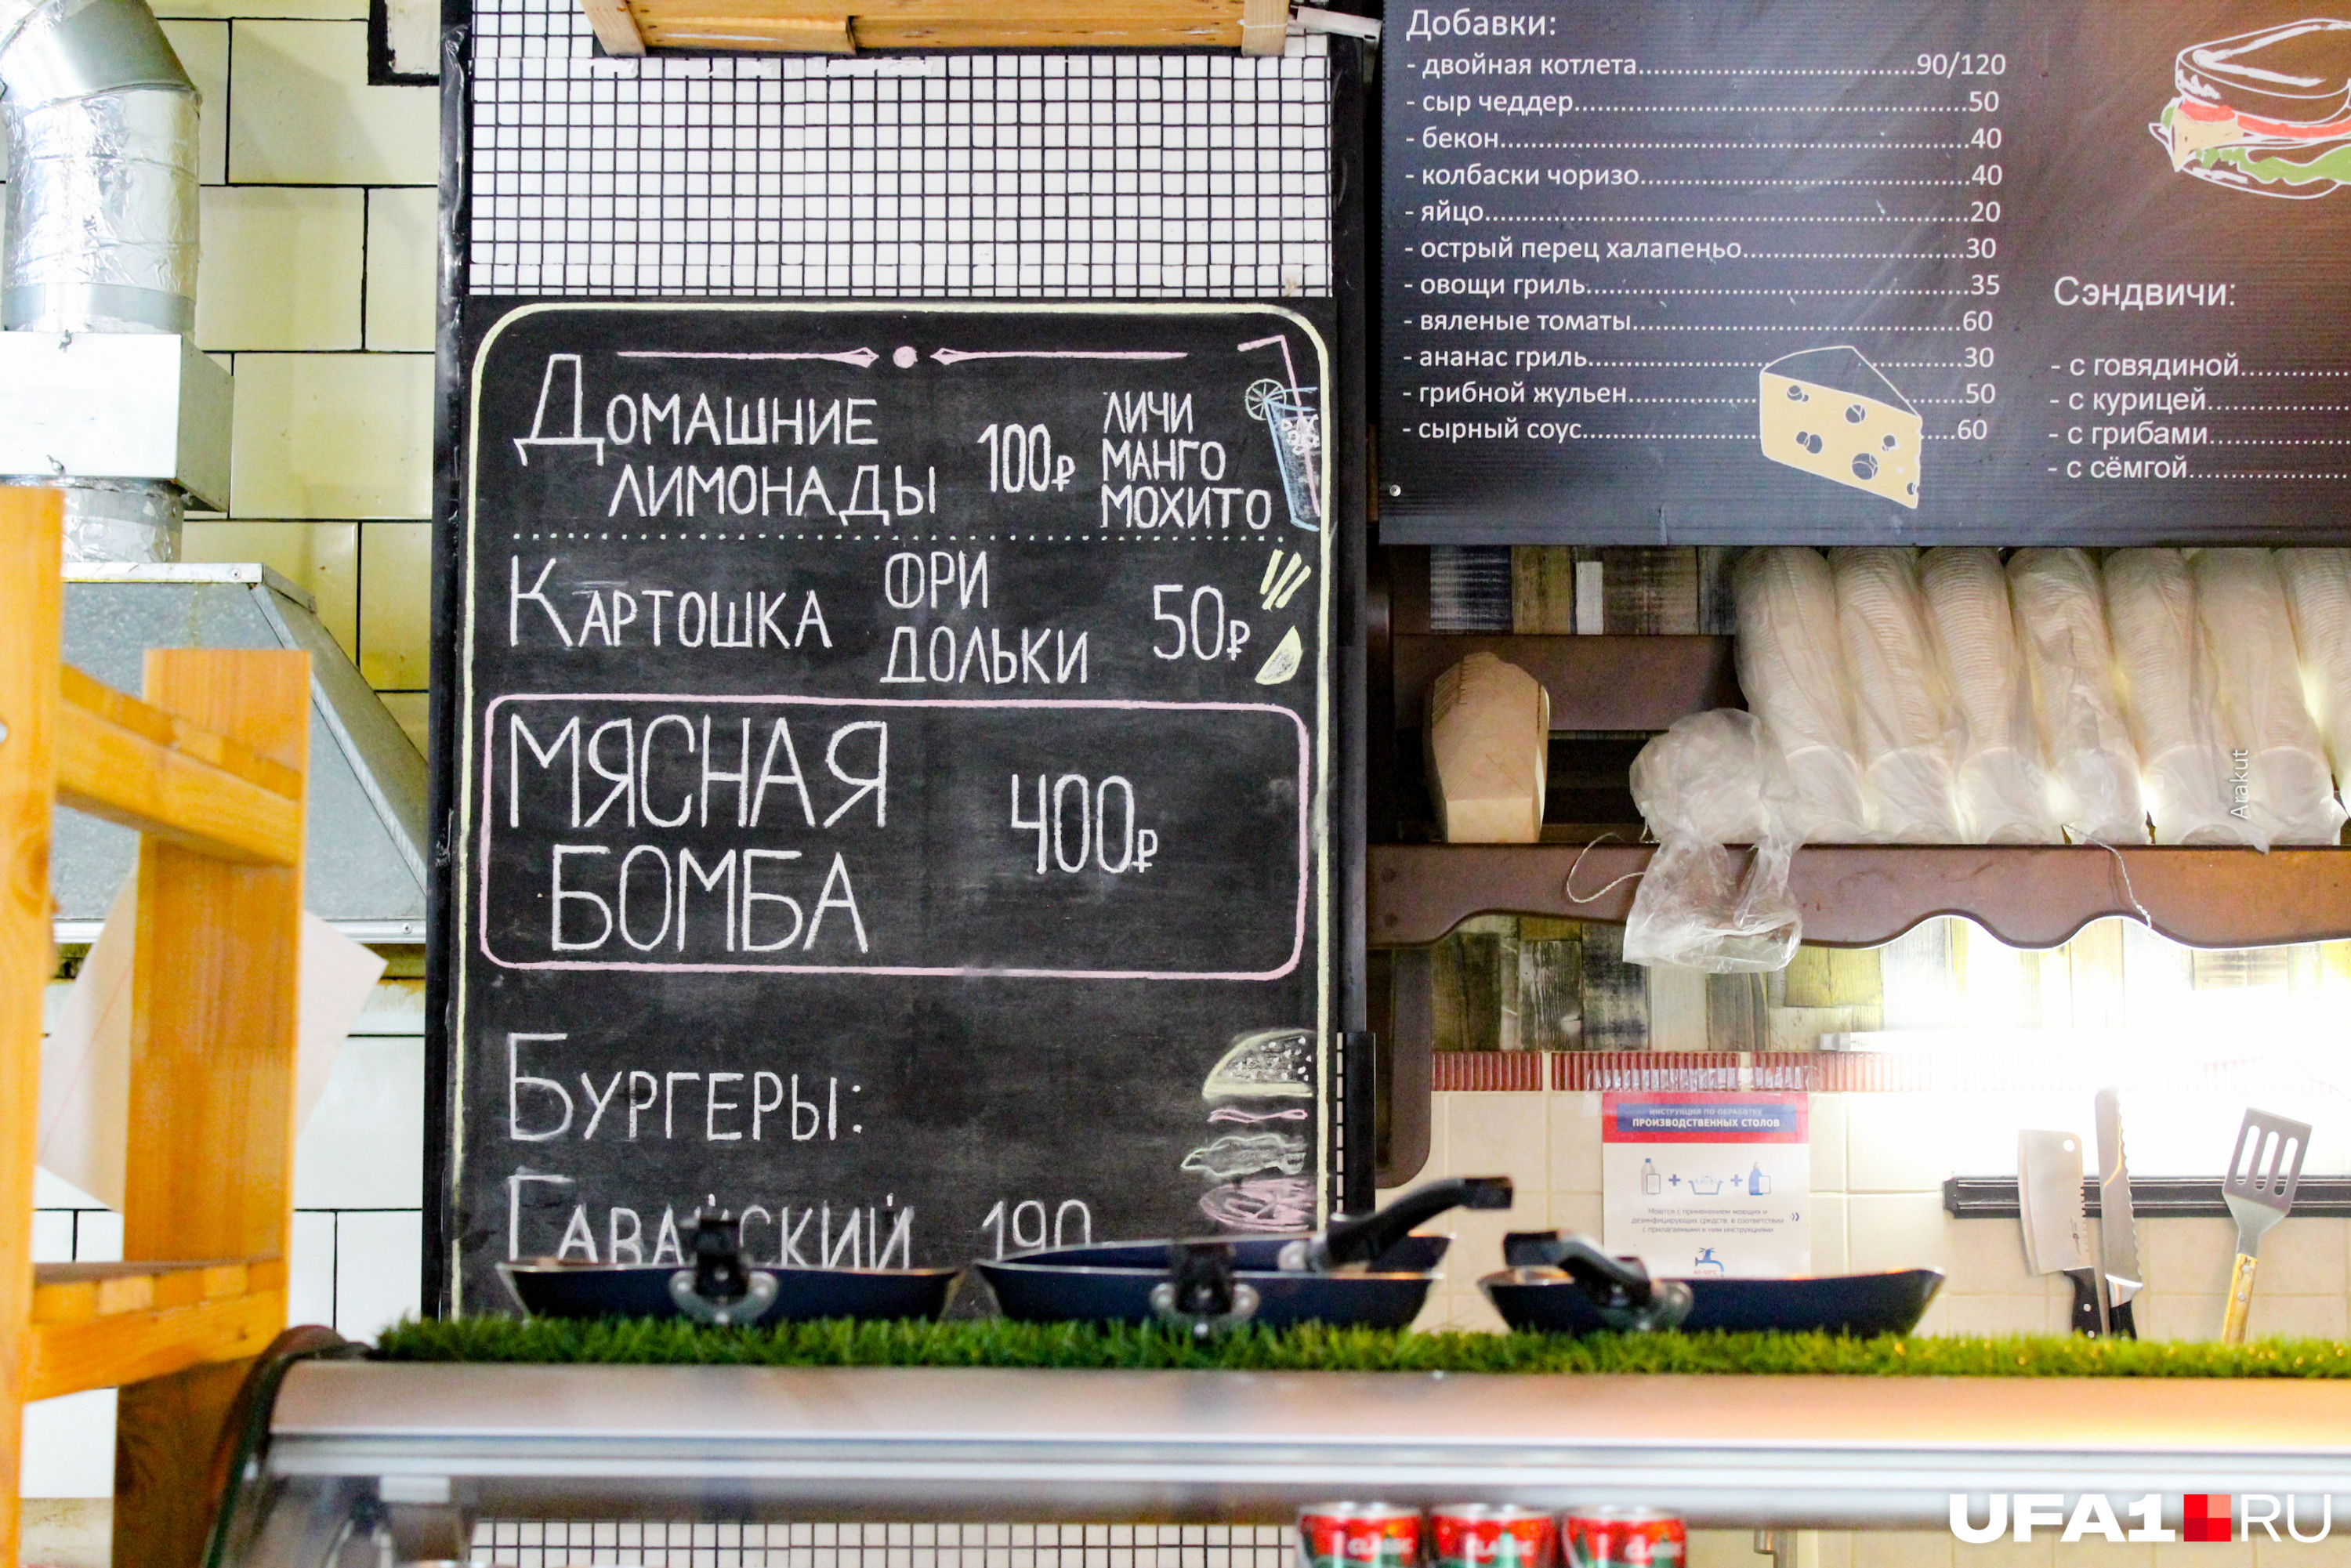 Домашние
лимонады
100₽
личи
манго
мохито
Картошка
фри
дольки
50₽
МЯСНАЯ
БОМБА
400₽
Бургеры:
Гавайский 190
Добавки:
- двойная котлета.....................................90/120
- сыр чеддер.....................................................50
- бекон...............................................................40
- колбаски чоризо............................................40
- яйцо.................................................................20
- острый перец халапеньо..............................30
- овощи гриль...................................................35
- вяленые томаты............................................60
- ананас гриль..................................................30
- грибной жульен.............................................50
- сырный соус...................................................60
Сэндвичи:
- с говядиной.............
- с курицей................
- с грибами................
- с сёмгой..................
Arakut
ИНСТРУКЦИЯ ПО ОБРАБОТКЕ
ПРОИЗВОДСТВЕННЫХ СТОЛОВ
Моются с применением моющих и
дезинфицирующих средств, в соответствии
с прилагаемыми к ним инструкциями
CLASSIC
CLASSIC
CLASSIC
UFA1 RU